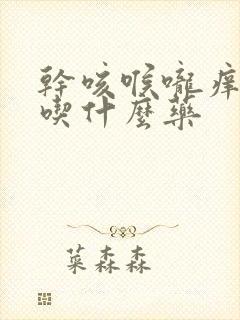 幹咳喉嚨痒
喫什麼藥
菜森森